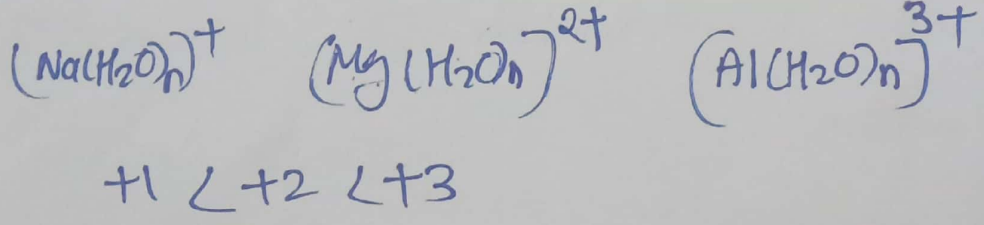 (Na(H₂O)n)⁺ (Mg(H₂O)n]²⁺ (Al(H₂O)n]³⁺
+1 < +2 < +3